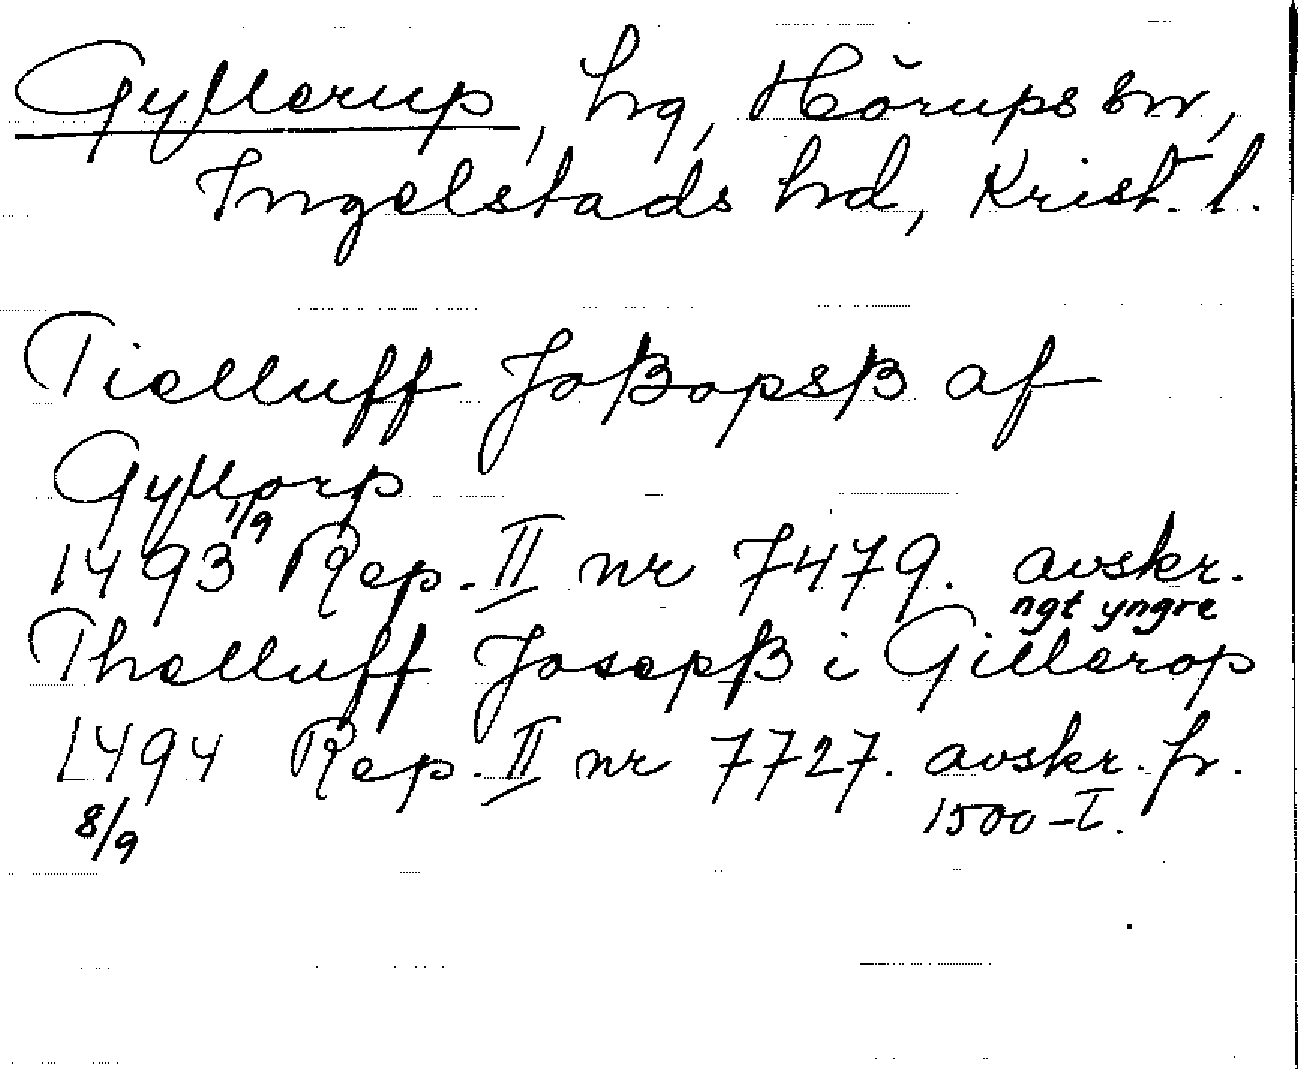 Gyllerup, hg, Hörups sn,
Ingelstads hd, Krist. l.
Tielluff Joßopsß af
Gyllorp
1493 1/9 Rep. II nr 7479. avskr.
ngt yngre
Thelluff Josepß i Gillerop
1494 Rep. II nr 7727. avskr. fr.
8/9 1500-T.